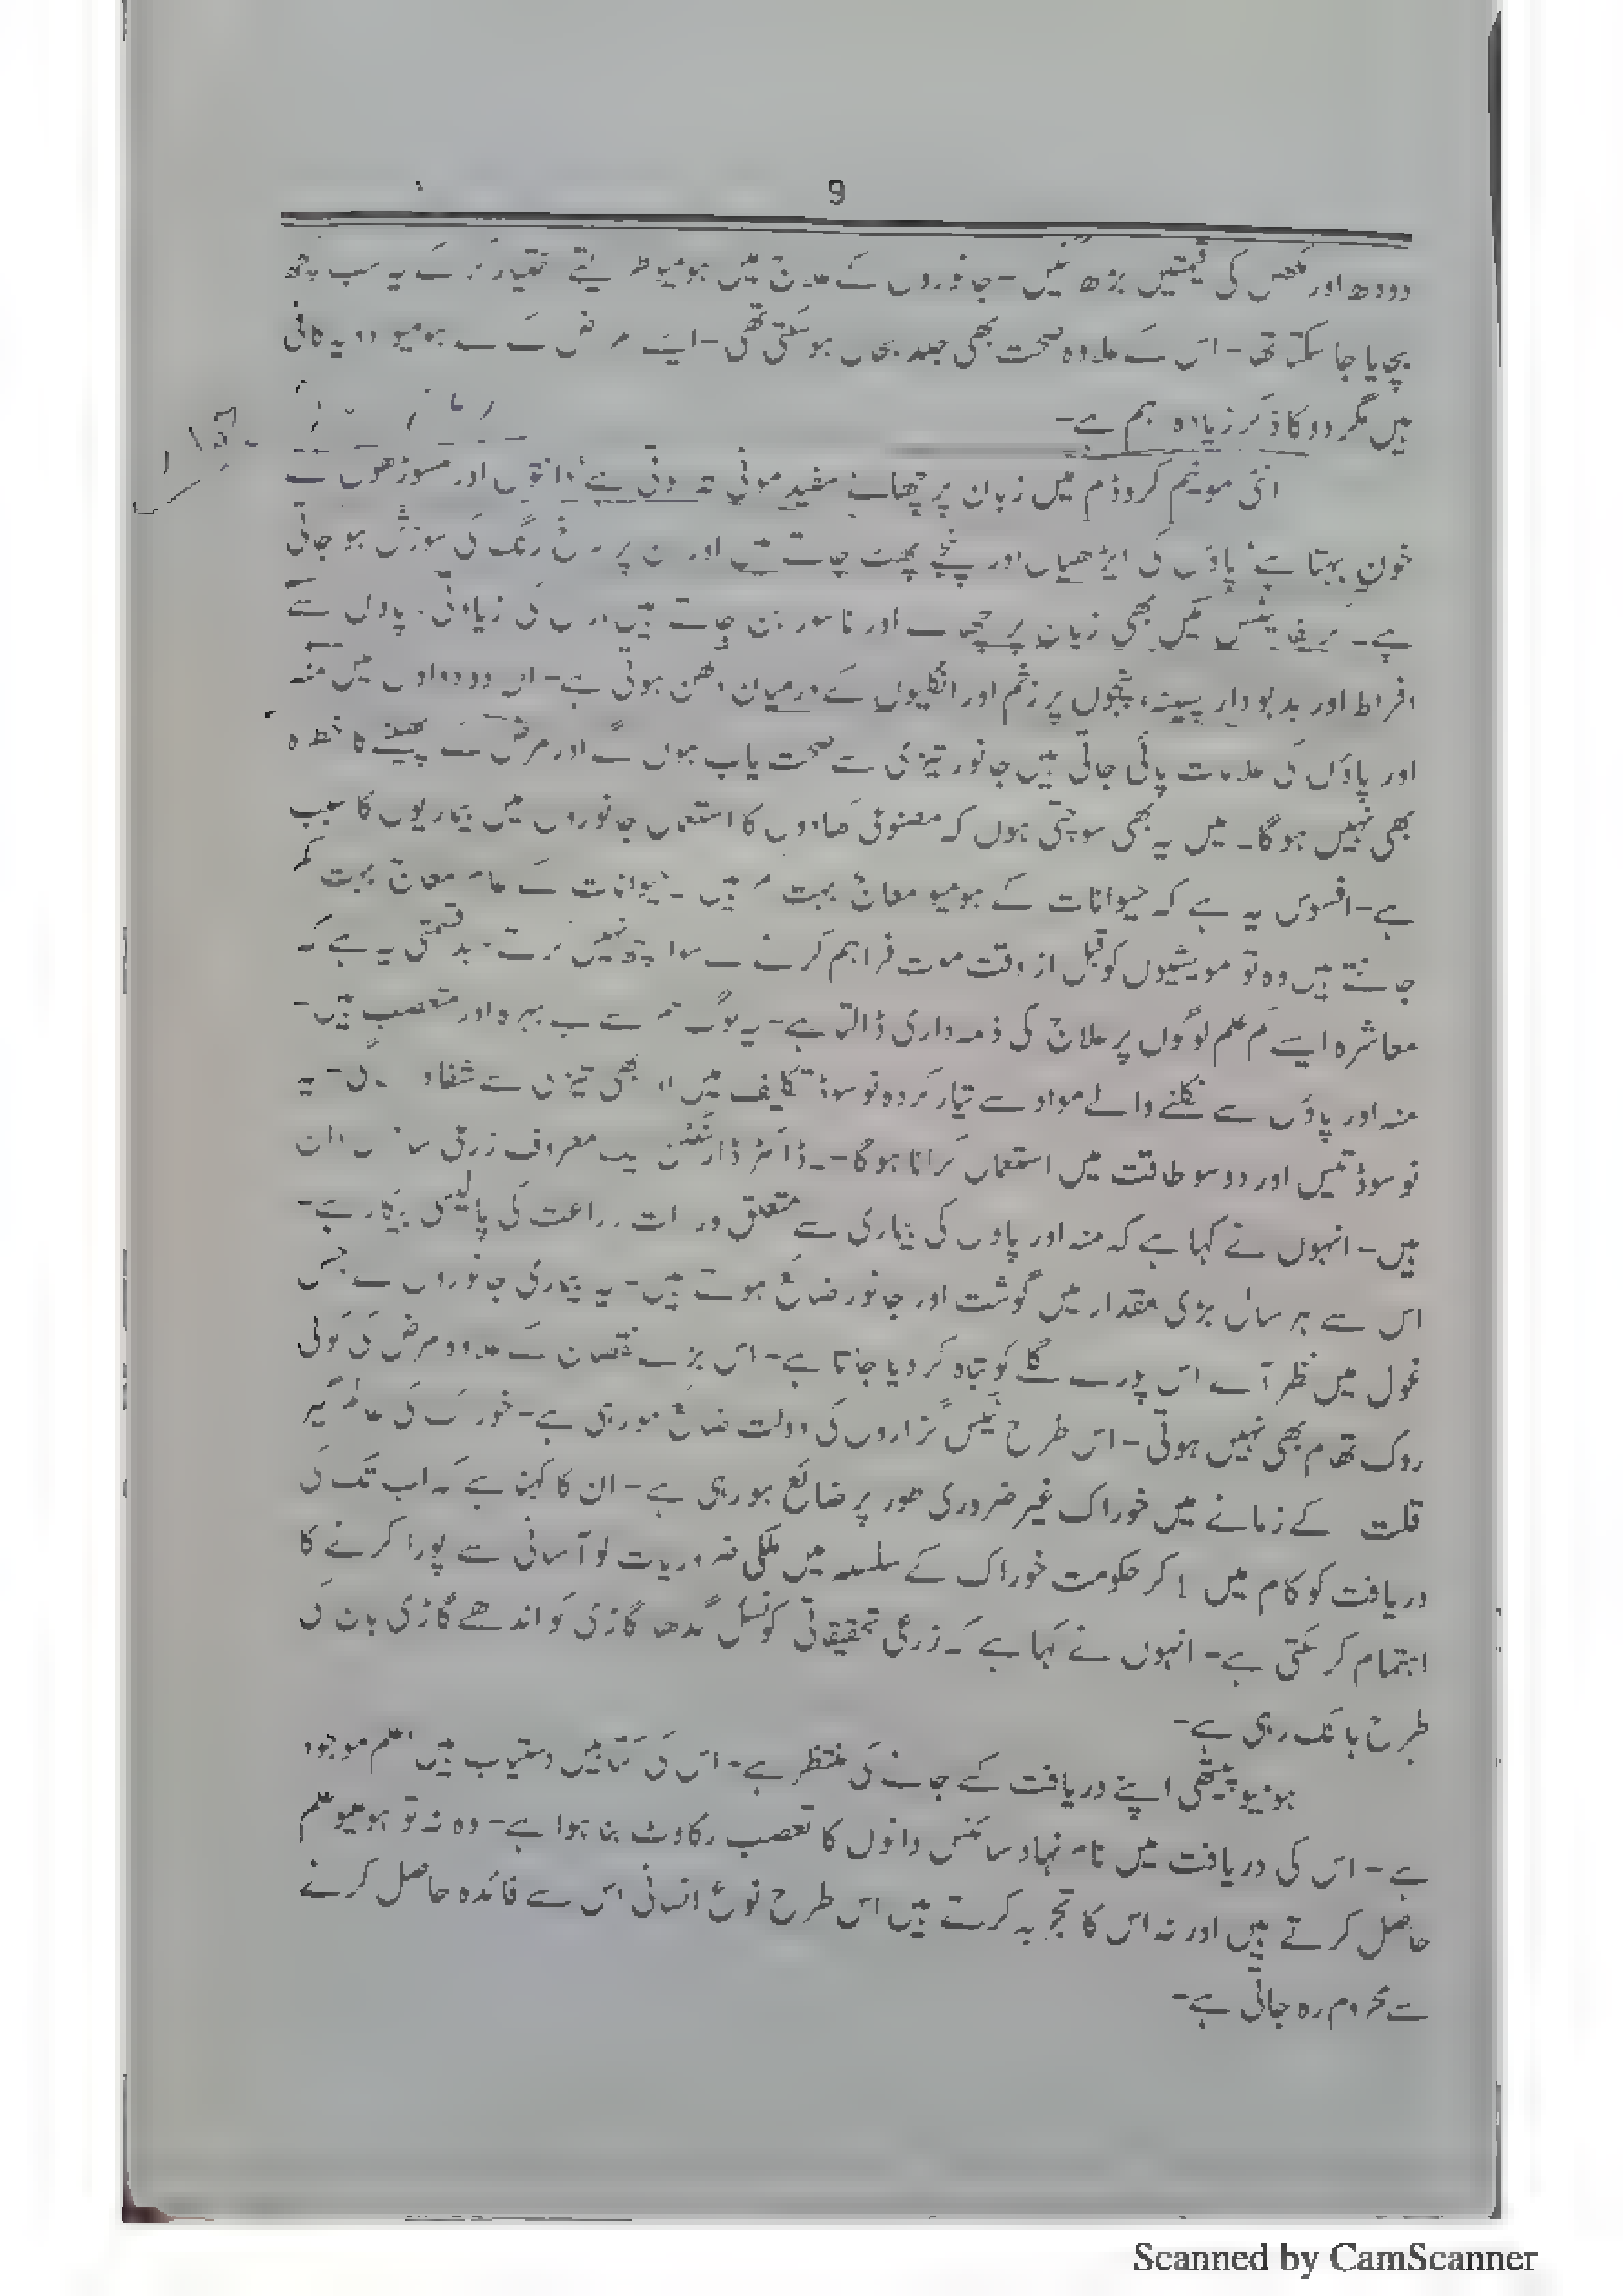 9
دودھ اور مکھن کی قیمتیں بڑھ گئیں - جانوروں کے علاج میں ہومیو طریقے اختیار کر کے یہ سب کچھ
بچایا جا سکتا تھا - اس کے علاوہ صحت بھی جلد بحال ہو سکتی تھی - ایسے مرض کے لئے ہومیو ادویہ کافی
ہیں مگر دو کا ذکر زیادہ اہم ہے -
انٹی مونیم کروڈم میں زبان پر چھالے سفید موٹی تہہ ہوتی ہے، دانتوں اور مسوڑھوں سے
خون بہتا ہے، پاؤں کی ایڑھیاں اور پنجے پھٹ جاتے ہیں اور ان پر سرخ رنگ کی سوزش ہو جاتی
ہے - گریفائیٹس میں بھی زبان پر چھالے اور ناسور بن جاتے ہیں، رال کی زیادتی، پاؤں سے
افراط اور بدبودار پسینہ، پنجوں پر زخم اور انگلیوں کے درمیان دکھن ہوتی ہے - ان دو دواؤں میں منہ
اور پاؤں کی علامات پائی جاتی ہیں جانور تیزی سے صحت یاب ہوں گے اور مرض کے پھیلنے کا خطرہ
بھی نہیں ہوگا - میں یہ بھی سوچتی ہوں کہ مصنوعی کھادوں کا استعمال جانوروں میں بیماریوں کا سبب
ہے - افسوس یہ ہے کہ حیوانات کے ہومیو معالج بہت کم ہیں - حیوانات کے عام معالج بہت کم
جانتے ہیں وہ تو مویشیوں کو قبل از وقت موت فراہم کرنے کے سوا کچھ نہیں کرتے - بدقسمتی یہ ہے کہ
معاشرہ ایسے کم علم لوگوں پر علاج کی ذمہ داری ڈالتا ہے - یہ لوگ علم سے بے بہرہ اور متعصب ہیں -
منہ اور پاؤں سے نکلنے والے مواد سے تیار کردہ نوسوڈ تکالیف میں بھی تیزی سے شفا - یہ
نوسوڈ تیس اور دو سو طاقت میں استعمال کرانا ہوگا - ڈاکٹر ڈارلنگٹن ایک معروف زرعی سائنس دان
ہیں - انہوں نے کہا ہے کہ منہ اور پاؤں کی بیماری سے متعلق وزارت زراعت کی پالیسی بیکار ہے -
اس سے ہر سال بڑی مقدار میں گوشت اور جانور ضائع ہوتے ہیں - یہ بیماری جانوروں کے جس
غول میں نظر آئے اس پورے گلے کو تباہ کر دیا جاتا ہے - اس بڑے نقصان کے علاوہ مرض کی کوئی
روک تھام بھی نہیں ہوتی - اس طرح ٹیکس گزاروں کی دولت ضائع ہو رہی ہے - خوراک کی عالمگیر
قلت کے زمانے میں خوراک غیر ضروری طور پر ضائع ہو رہی ہے - ان کا کہنا ہے کہ اب تک کی
دریافت کو کام میں لا کر حکومت خوراک کے سلسلہ میں ملکی ضروریات کو آسانی سے پورا کرنے کا
اہتمام کر سکتی ہے - انہوں نے کہا ہے کہ زرعی تحقیقاتی کونسل گدھا گاڑی کو اندھے گاڑی بان کی
طرح ہانک رہی ہے -
ہومیوپیتھی اپنے دریافت کئے جانے کی منتظر ہے - اس کی کتابیں دستیاب ہیں، علم موجود
ہے - اس کی دریافت میں نام نہاد سائنس دانوں کا تعصب رکاوٹ بنا ہوا ہے - وہ نہ تو ہومیو علم
حاصل کرتے ہیں اور نہ اس کا تجربہ کرتے ہیں اس طرح نوع انسانی اس سے فائدہ حاصل کرنے
سے محروم رہ جاتی ہے -
Scanned by CamScanner